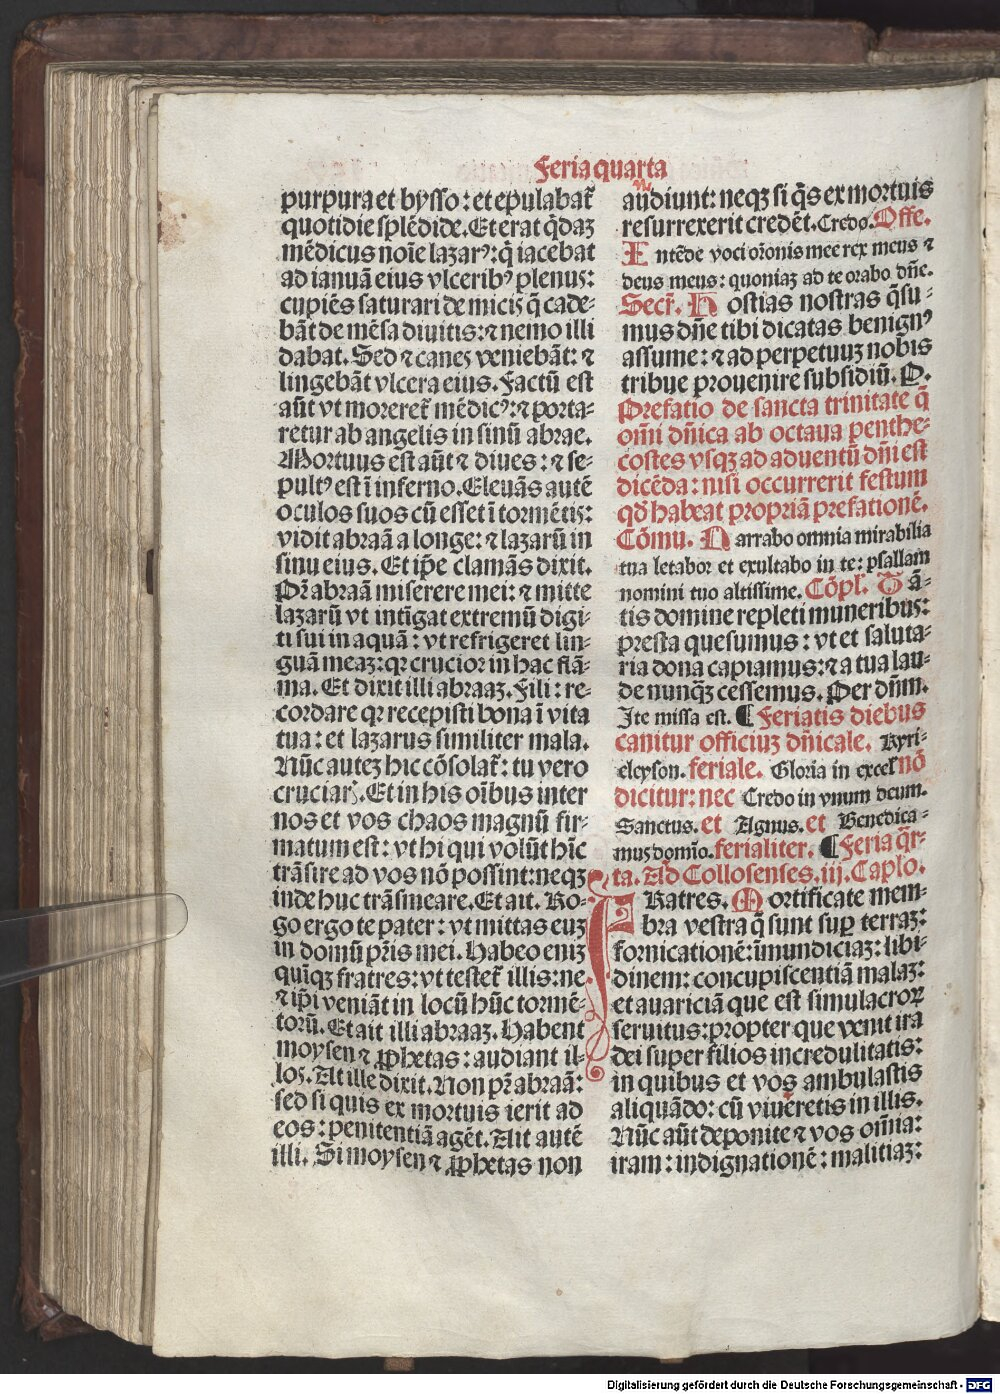 Feria quarta
purpura et bysso : et epulabat᷑
quotidie splēdide. Et erat q̄daꝫ
mēdicus noīe lazarꝰ: q̄ iacebat
ad ianuā eius vlceribꝰ plenus:
cupiēs saturari de micis q̄ cade-
bāt de mēsa diuitis: ⁊ nemo illi
dabat. Sed ⁊ canes veniebāt: ⁊
lingebāt vlcera eius. Factū est
aūt vt moreret᷑ mēdicꝰ: ⁊ porta-
retur ab angelis in sinū abrae.
Mortuus est aūt ⁊ diues : ⁊ se-
pultꝰ est ī inferno. Eleuās autē
oculos suos cū esset ī tormētis:
vidit abraā a longe: ⁊ lazarū in
sinu eius. Et ip̄e clamās dixit.
Pr̄ abraā miserere mei: ⁊ mitte
lazarū vt intīgat extremū digi-
ti sui in aquā : vt refrigeret lin-
guā meaꝫ: qꝛ crucior in hac flā-
ma. Et dixit illi abraaꝫ. Fili : re-
cordare qꝛ recepisti bona ī vita
tua : et lazarus similiter mala.
Nūc auteꝫ hic cōsolat᷑: tu vero
cruciar᷑. Et in his oībus inter
nos et vos chaos magnū fir-
matum est : vt hi qui volūt hīc
trāsire ad vos nō possint: neqꝫ
inde huc trāsmeare. Et ait. Ro-
go ergo te pater : vt mittas euꝫ
in domū pr̄is mei. Habeo eniꝫ
quīqꝫ fratres : vt testet᷑ illis: ne
⁊ ip̄i veniāt in locū hūc tormē-
torū. Et ait illi abraaꝫ. Habent
moysen ⁊ ꝓphetas : audiant il-
los. At ille dixit. Non pr̄ abraā:
sed si quis ex mortuis ierit ad
eos : penitentiā agēt. Ait autē
illi. Si moysen ⁊ ꝓphetas non
audiunt: neqꝫ si q̄s ex mortuis
resurrexerit credēt. Credo. Offe.
Intēde voci or̄onis mee rex meus ⁊
deus meus : quoniaꝫ ad te orabo dn̄e.
Secr̄. Hostias nostras q̄su-
mus dn̄e tibi dicatas benignꝰ
assume : ⁊ ad perpetuuꝫ nobis
tribue prouenire subsidiū. P.
Prefatio de sancta trinitate q̄
om̄i dn̄ica ab octaua penthe-
costes vsqꝫ ad aduentū dn̄i est
dicēda : nisi occurrerit festum
qd̄ habeat propriā prefationē.
Cōmu. Narrabo omnia mirabilia
tua letabor et exultabo in te : psallam
nomini tuo altissime. Cōpl. Tā-
tis domine repleti muneribus:
presta quesumus : vt et saluta-
ria dona capiamus: ⁊ a tua lau-
de nunq̄ꝫ cessemus. Per dn̄m.
Ite missa est. ¶ Feriatis diebus
canitur officiuꝫ dn̄icale. Kyri-
eleyson. feriale. Gloria in excel nō
dicitur: nec Credo in vnum deum.
Sanctus. et Agnus. et Benedica-
mus domīo. ferialiter. ¶ Feria q̄r-
ta. Ad Collosenses. iij. Caplo.
FRatres. Mortificate mem-
bra vestra q̄ sunt suꝑ terraꝫ:
fornicationē: īmundiciaꝫ: libi-
dinem: concupiscentiā malaꝫ:
et auariciā que est simulacroꝝ
seruitus: propter que venit ira
dei super filios incredulitatis:
in quibus et vos ambulastis
aliquādo: cū viueretis in illis.
Nūc aūt deponite ⁊ vos om̄ia:
iram : indignationē : malitiaꝫ:
Digitalisierung gefördert durch die Deutsche Forschungsgemeinschaft - DFG